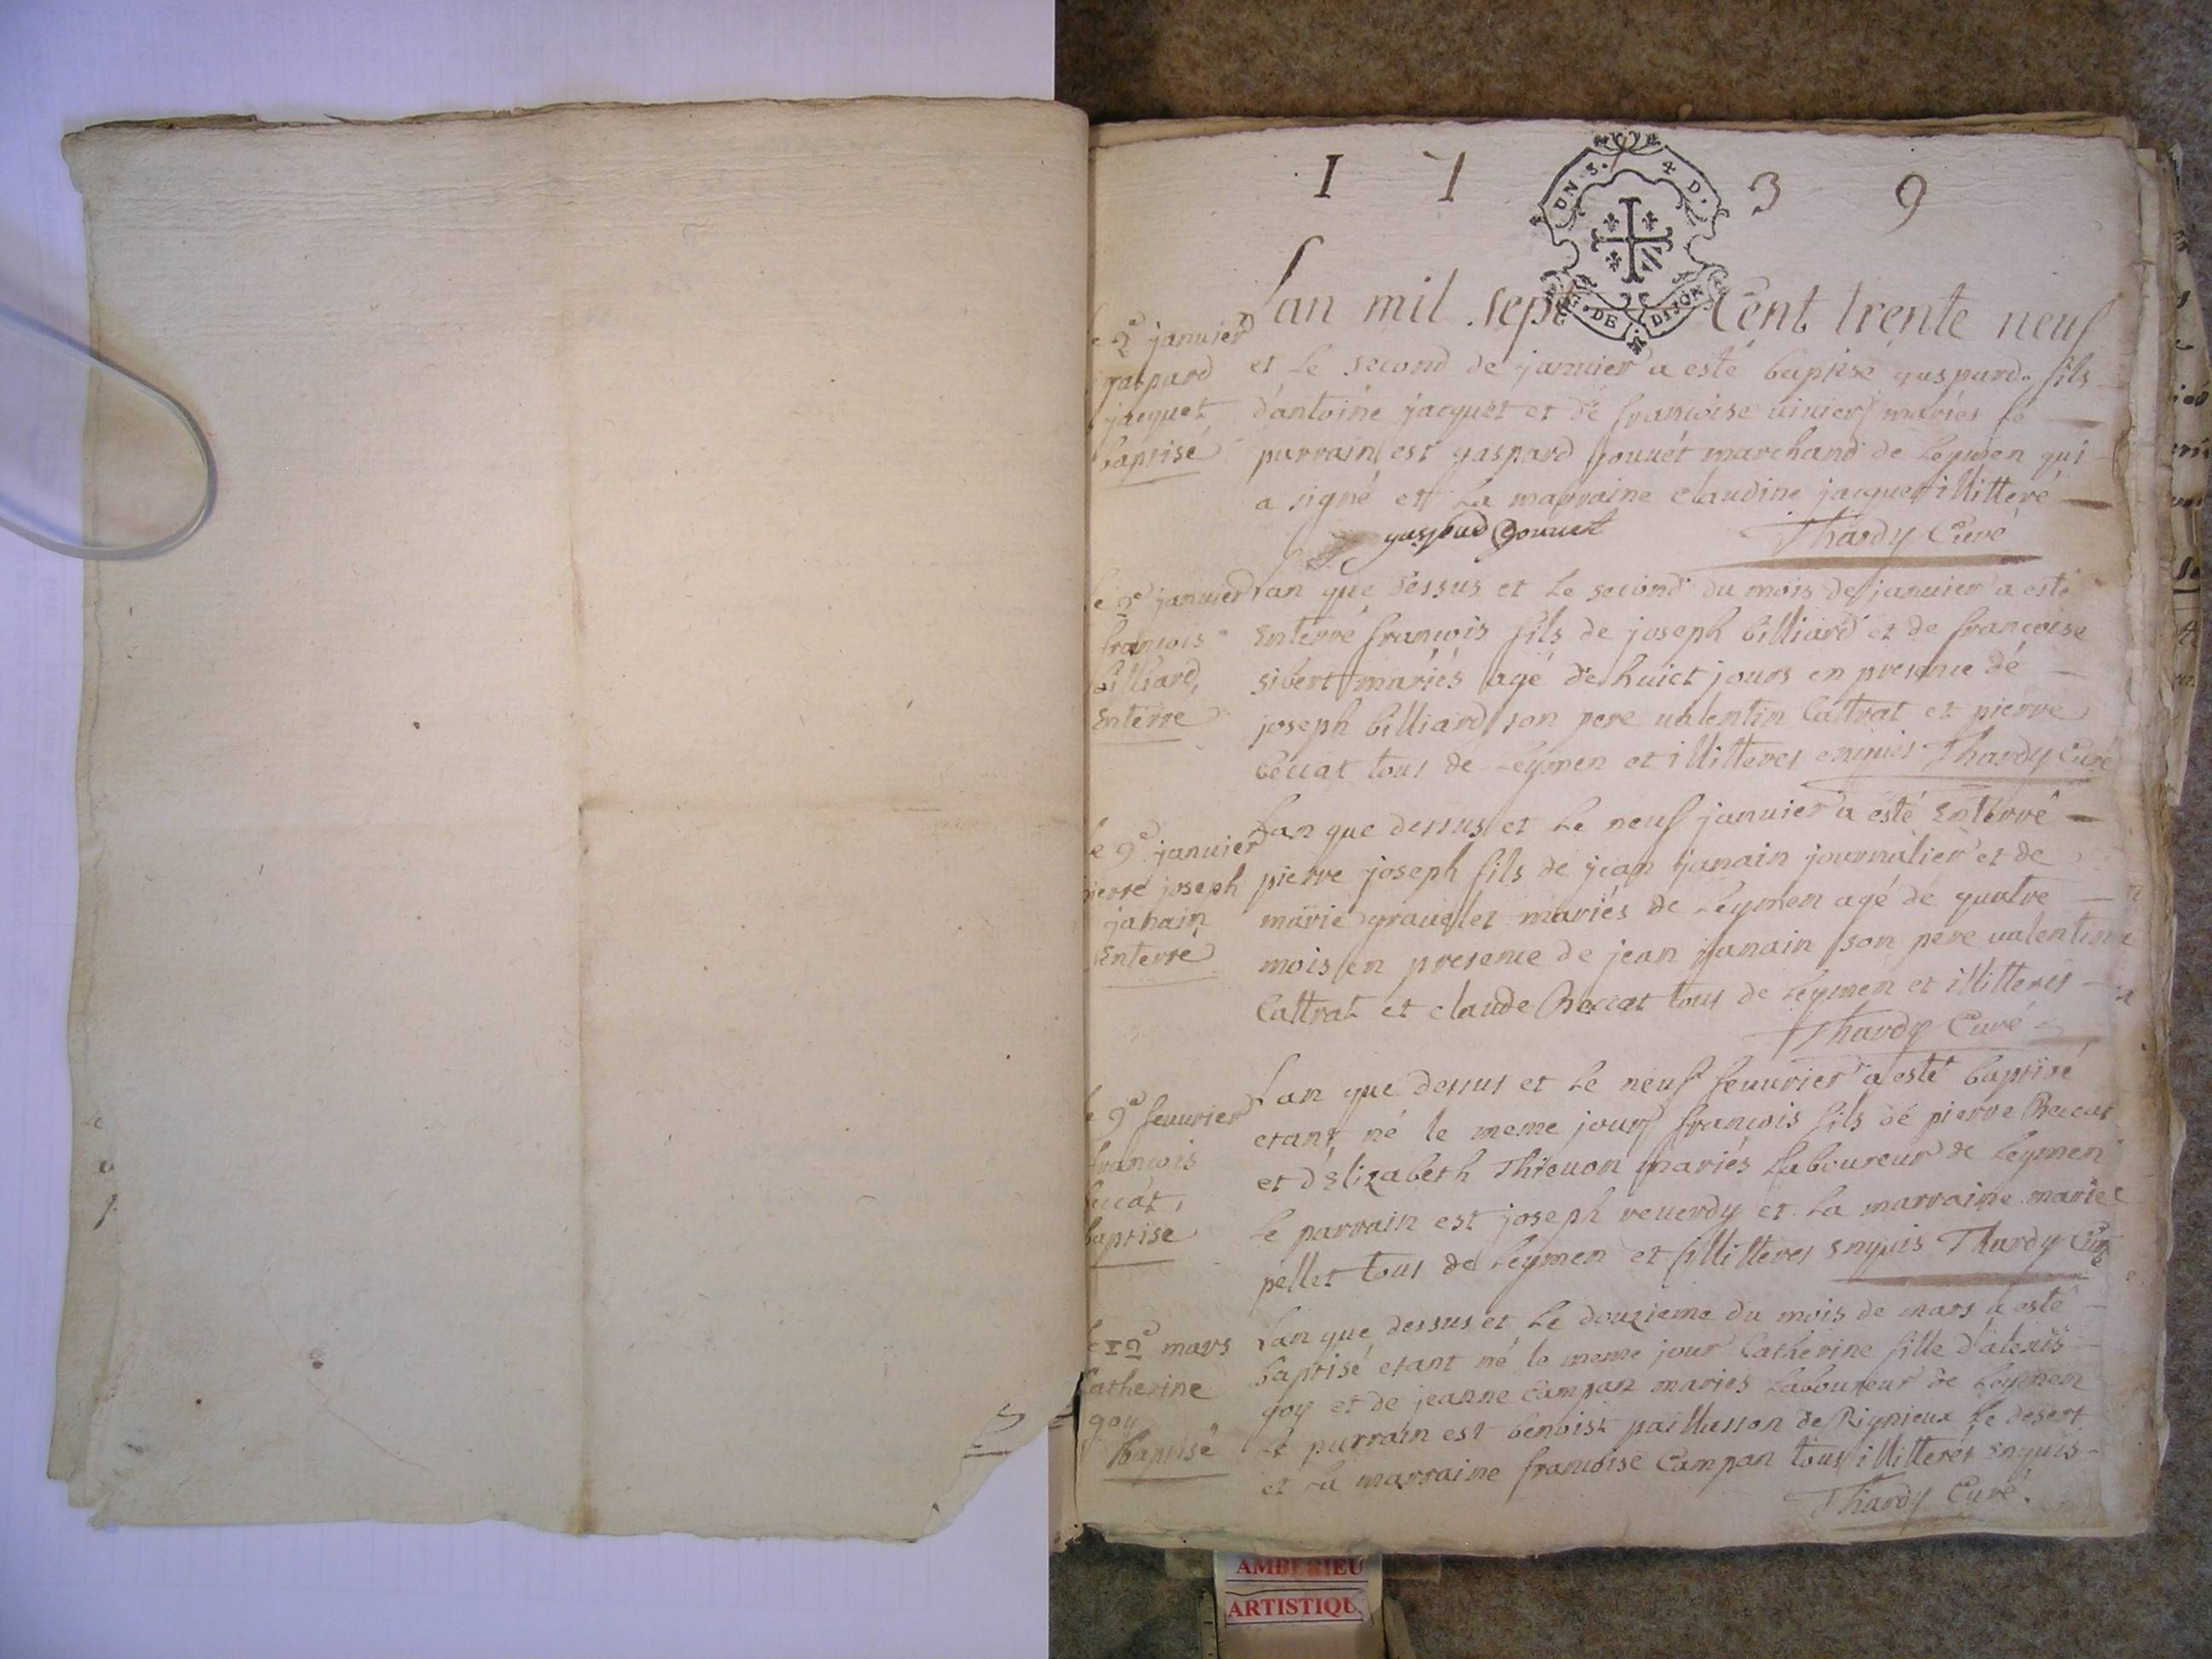 1 7 3 9
UN S. 4 D.
GEN. DE DIJON
Lan mil sept Cent trente neuf
le 2e januier
gaspard
jacquet
baptisé
et le second de januier a esté baptisé gaspard fils
d'antoine jacquet et de francoise uiuier mariés le
parrain est gaspard gouuet marchand de Leymen qui
a signé et la marraine claudine jacquet illitteré
gaspard gouuet Thardy Curé
le 2e januier
francois
billiard,
Enterre
Lan que dessus et le second du mois de januier a esté
Enterré francois fils de joseph billiard et de francoise
sibert mariés agé de huict jours en presence de
joseph billiard son pere ualentin Cattrat et pierre
beccat tous de Leymen et illitteres enquis Thardy Curé
le 9e januier
pierre joseph
janain
Enterré
Lan que dessus et le neuf januier a esté Enterré
pierre joseph fils de jean janain journalier et de
marie grauellet mariés de Leymen agé de quatre
mois en presence de jean janain son pere ualentin
Cattrat et claude Beccat tous de Leymen et illitterés
Thardy Curé
le 9e feuurier
francois
beccat,
baptise
Lan que dessus et le neuf feuurier a esté baptisé
etant né le meme jour francois fils de pierre Beccat
et d'Elizabeth Thieuon mariés Laboureur de Leymen
le parrain est joseph reuerdy et la marraine marie
pellet tous de Leymen et illitteres Enquis Thardy Curé
le 12e mars
Catherine
goy
baptisé
Lan que dessus et le douzieme du mois de mars a esté
baptisé etant né le meme jour Catherine fille d'alexis
goy et de jeanne Campan mariés Laboureur de Leymen
le parrain est benoist paillasson de Rignieux le desert
et la marraine francoise Campan tous illitterés Enquis
Thardy Curé.
AMBERIEU
ARTISTIQU